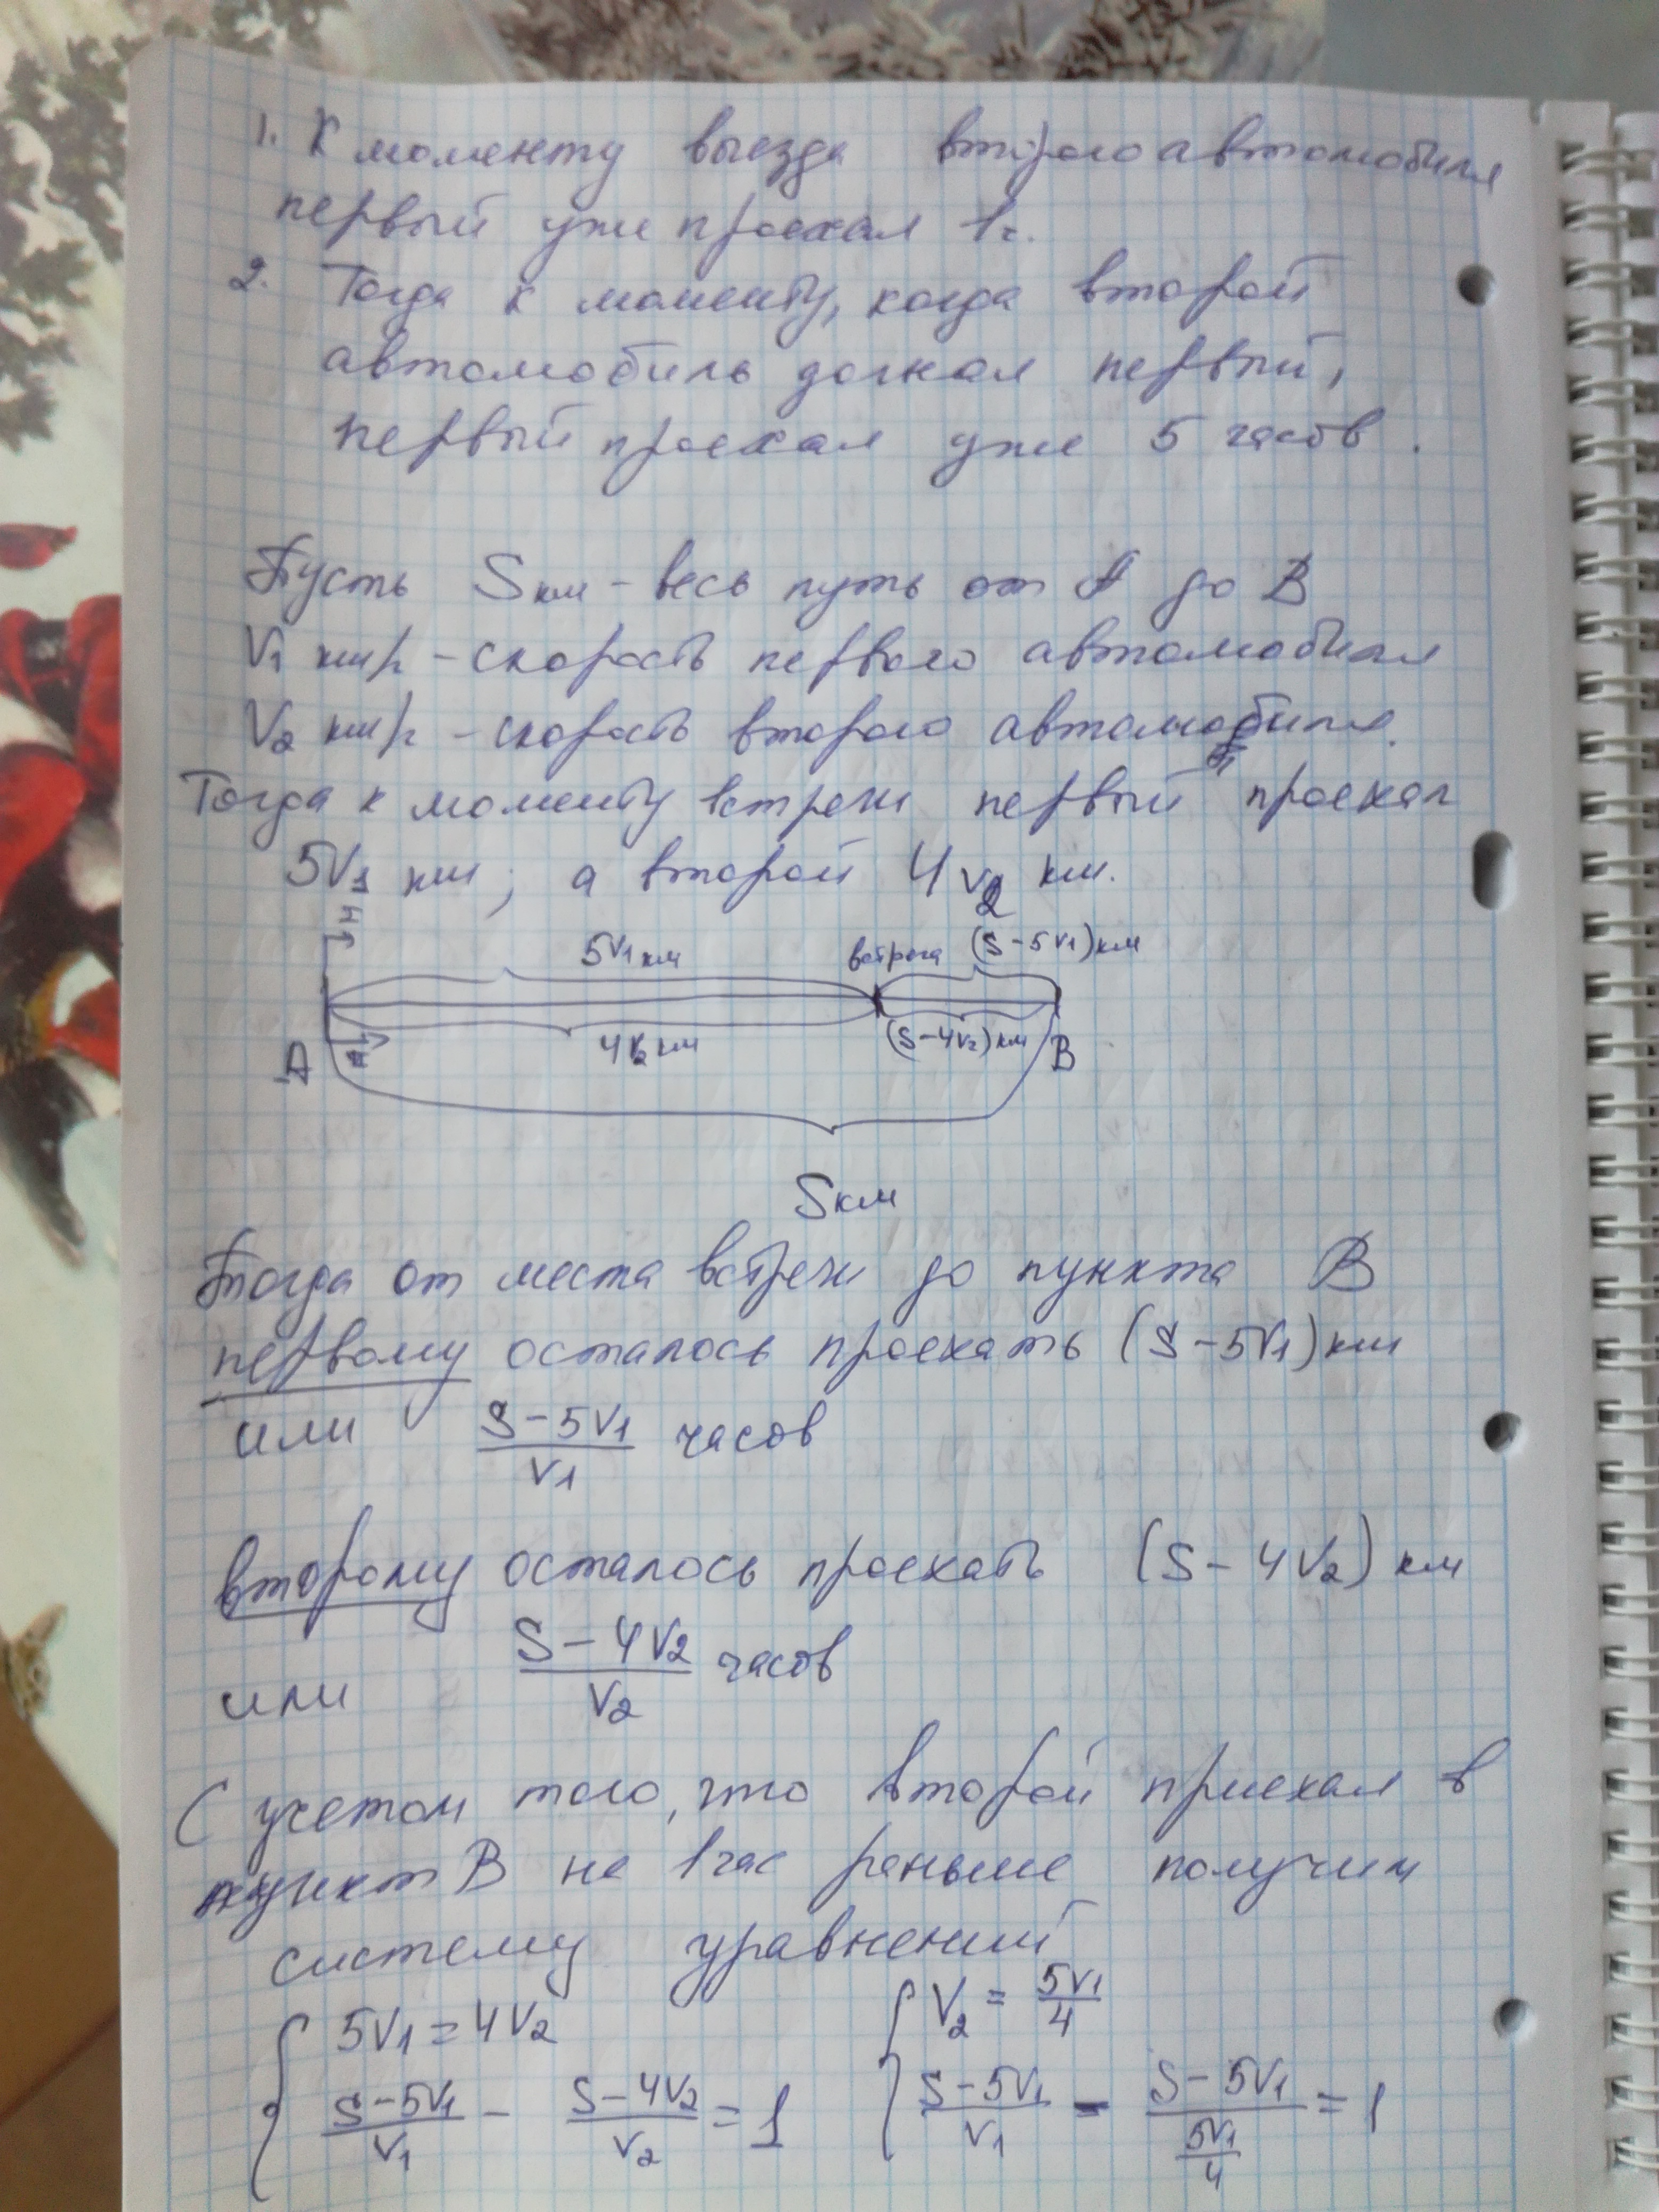 1. К моменту выезда второго автомобиля
первый уже проехал 1ч.
2. Тогда к моменту, когда второй
автомобиль догнал первый,
первый проехал уже 5 часов.
Пусть S км - весь путь от A до B
V1 км/ч - скорость первого автомобиля
V2 км/ч - скорость второго автомобиля.
Тогда к моменту встречи первый проехал
5V1 км, а второй 4V2 км.
5V1 км встреча (S-5V1) км
4V2 км (S-4V2) км
A B
S км
Тогда от места встречи до пункта B
первому осталось проехать (S-5V1) км
или (S-5V1)/V1 часов
второму осталось проехать (S-4V2) км
или (S-4V2)/V2 часов
С учетом того, что второй приехал в
пункт B на 1 час раньше получим
систему уравнений
{ 5V1 = 4V2 { V2 = 5V1/4
(S-5V1)/V1 - (S-4V2)/V2 = 1 (S-5V1)/V1 - (S-5V1)/(5V1/4) = 1